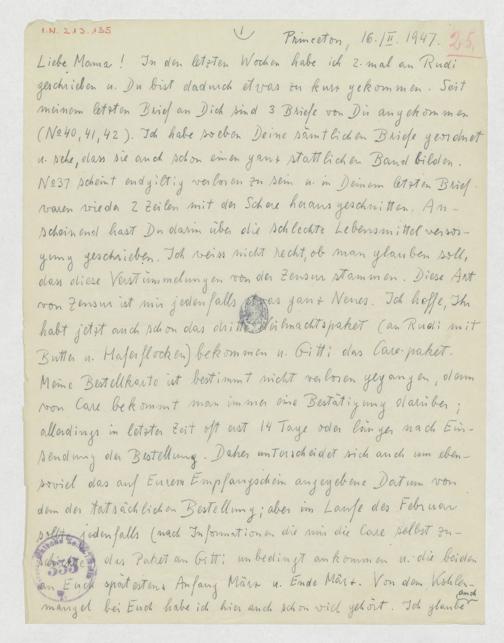 I.N. 213.135
1
Princeton, 16./II. 1947.
25.
Liebe Mama! In den letzten Wochen habe ich 2-mal an Rudi
geschrieben u. Du bist dadurch etwas zu kurz gekommen. Seit
meinem letzten Brief an Dich sind 3 Briefe von Dir angekommen
(No40, 41, 42). Ich habe soeben Deine sämtlichen Briefe geordnet
u. sehe, dass sie auch schon einen ganz stattlichen Band bilden.
No37 scheint endgiltig verloren zu sein u. in Deinem letzten Brief
waren wieder 2 Zeilen mit der Schere herausgeschnitten. An-
scheinend hast Du darin über die schlechte Lebensmittelversor-
gung geschrieben. Ich weiss nicht recht, ob man glauben soll,
dass diese Verstümmelungen von der Zensur stammen. Diese Art
von Zensur ist mir jedenfalls etwas ganz Neues. Ich hoffe, Ihr
habt jetzt auch schon das dritte Weihnachtspaket (an Rudi mit
Butter u. Haferflocken) bekommen u. Gitti das Care-paket.
Meine Bestellkarte ist bestimmt nicht verloren gegangen, denn
von Care bekommt man immer eine Bestätigung darüber;
allerdings in letzter Zeit oft erst 14 Tage oder länger nach Ein-
sendung der Bestellung. Daher unterscheidet sich auch um eben-
soviel das auf Eurem Empfangschein angegebene Datum von
dem der tatsächlichen Bestellung; aber im Laufe des Februar
sollte jedenfalls (nach Informationen die mir die Care selbst zu-
das Paket an Gitti unbedingt ankommen u. die beiden
an Euch spätestens Anfang März u. Ende März. Von dem Kohlen-
mangel bei Euch habe ich hier auch schon viel gehört. Ich glaube auch
333